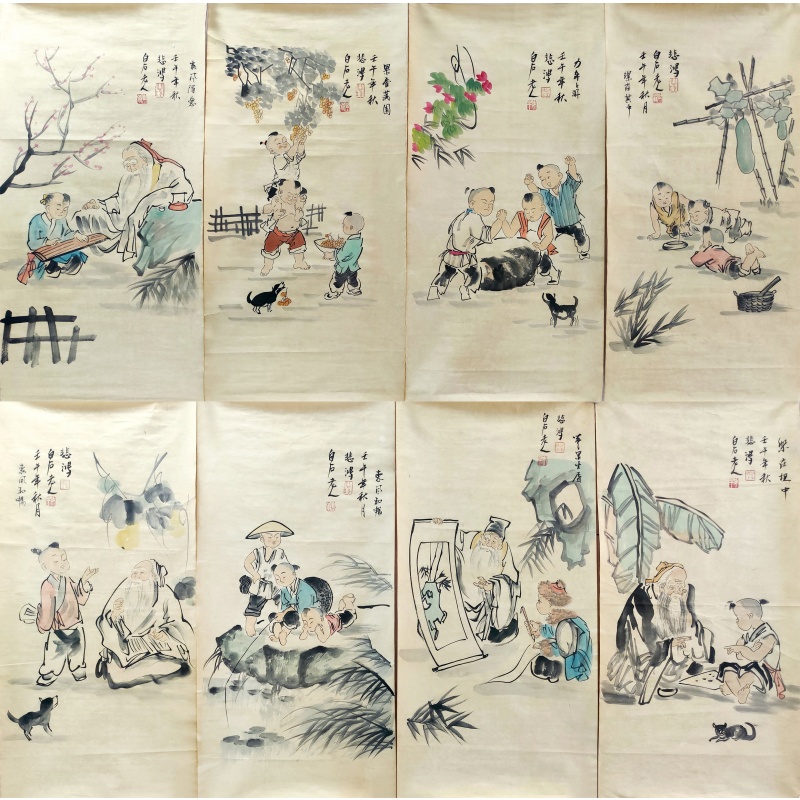 壬午年秋
悲鸿
白石老人
果香万园
壬午年秋
悲鸿
白石老人
壬午年秋
悲鸿
白石老人
悲鸿
白石老人
壬午年秋月
乐在其中
悲鸿
白石老人
壬午年秋月
惠风和畅
惠风和畅
壬午年秋月
悲鸿
白石老人
悲鸿
白石老人
乐在棋中
壬午年秋
悲鸿
白石老人